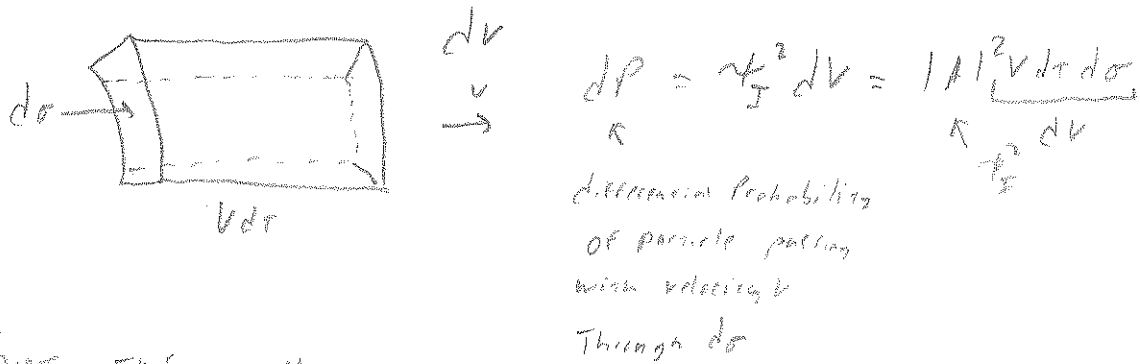 dV
v
dσ
Vdτ
dP = ψ_I² dV = |A|² V dτ dσ
dV
ψ_I²
differential Probability
of particle passing
with velocity v
Through dσ